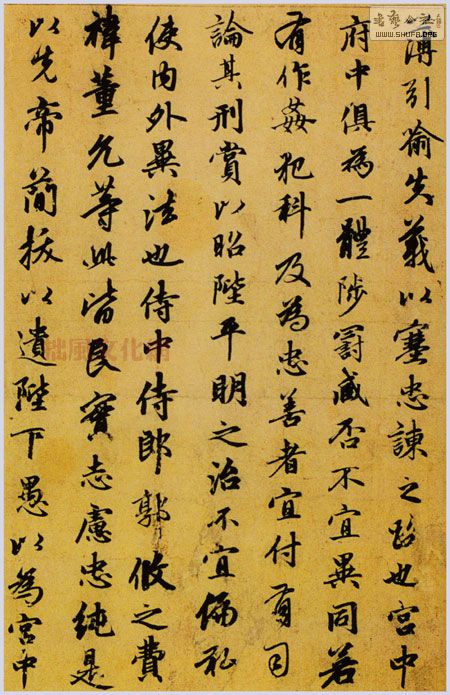 薄引喻失義以塞忠諫之路也宮中
府中俱為一體陟罰臧否不宜異同若
有作姦犯科及為忠善者宜付有司
論其刑賞以昭陛平明之治不宜偏私
使內外異法也侍中侍郎郭攸之費
禕董允等此皆良實志慮忠純是
以先帝簡拔以遺陛下愚以為宮中
拙風文化網
WWW.SHUFA.ORG